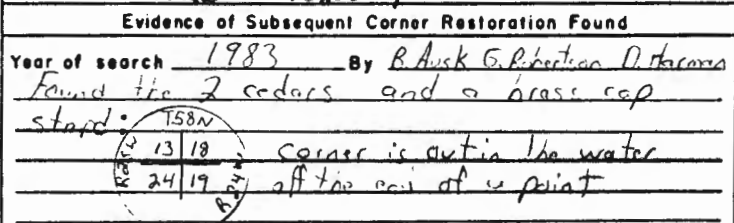 Evidence of Subsequent Corner Restoration Found
Year of search 1983 By B. Ausk G. Robertson D. Harman
Found the 2 cedars and a brass cap
stmpd:
T58N
13 18
24 19
R25W
R24W
corner is out in the water
off the end of a point